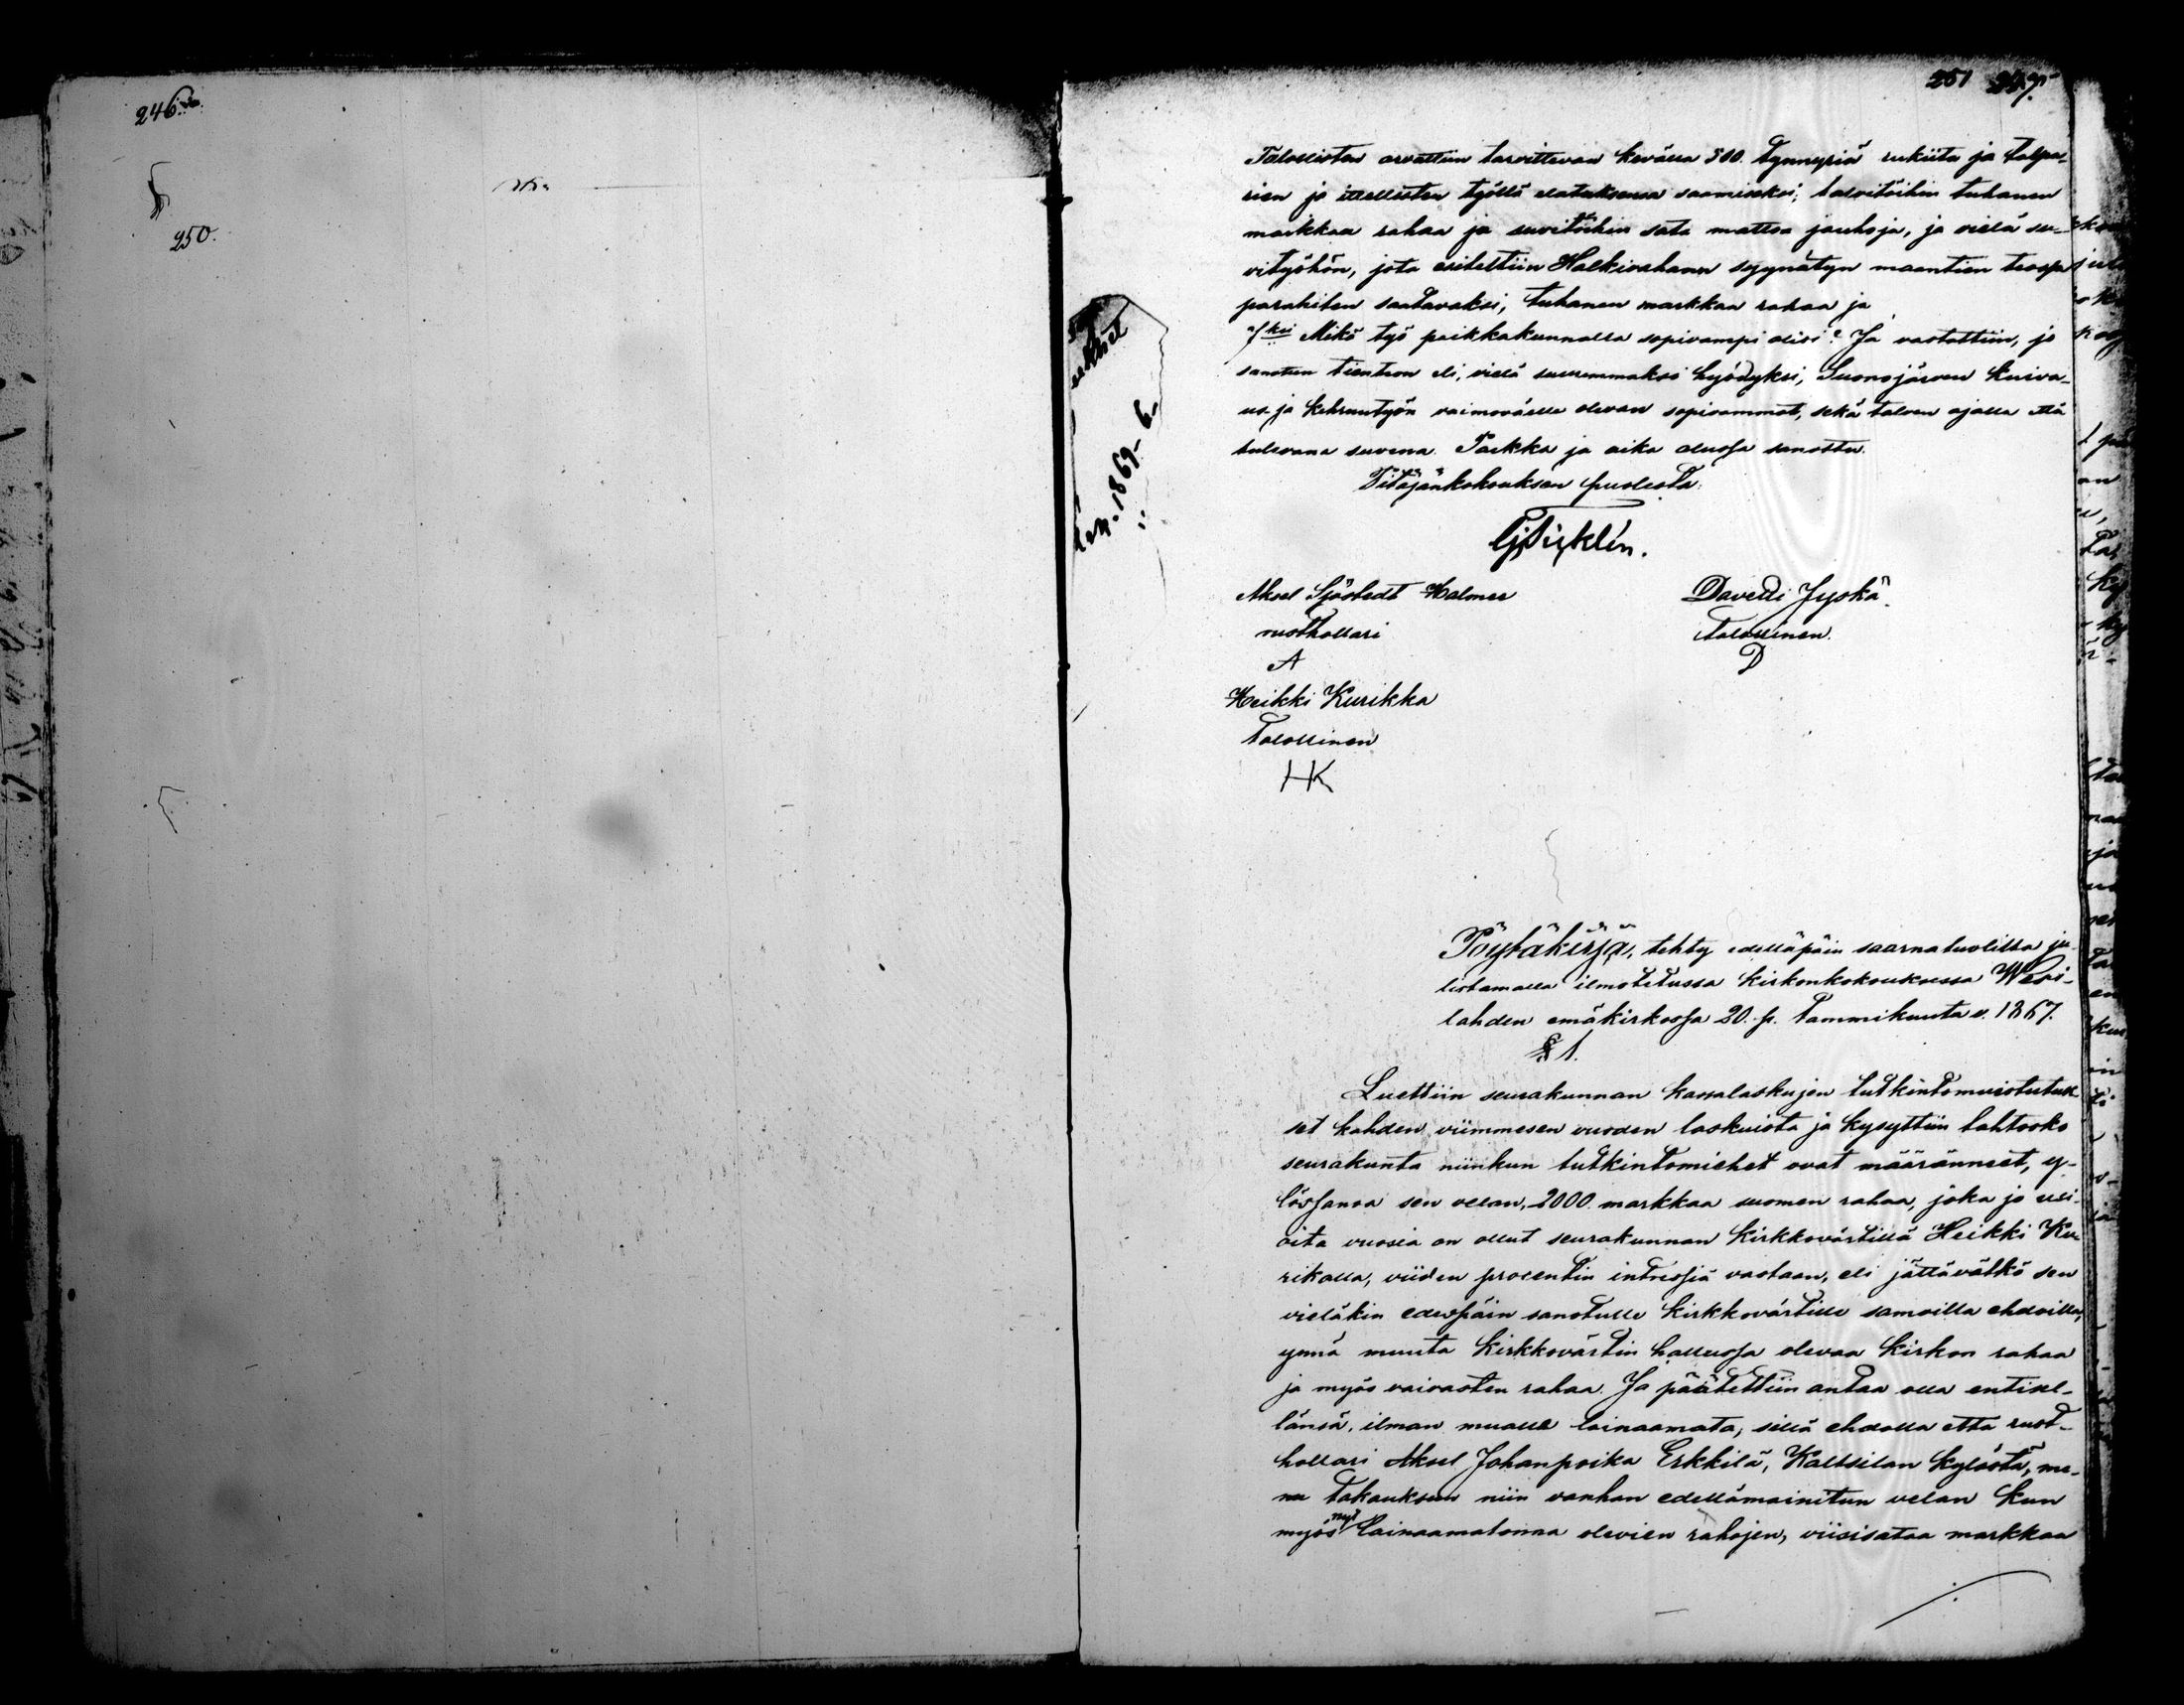 246
250.
251
1869-6-
Talollisten arvattiin tarvittevan keväällä 500. tynnyriä rukiita ja torpa-
rien ja itsellisten työllä elatuksensa saamiseksi; talvitöihin tuhanen
markkaa rahaa ja suvitöihin sata mattoa jauhoja, ja vielä su-
vityöhön, jota esiteltiin Halkivahan syynätyn maantien teossa
parahiten saatavaksi, tuhanen markkaa rahaa ja
ksi Mikä työ paikkakunnalla sopivampi olisi? Ja vastattiin, jo
sanotun tienteon eli, vielä suuremmaksi hyödyksi, Suonojärven kuiva-
us ja kehruutyön vaimoväelle olevan sopivammat, sekä talven ajalla että
tulevana suvena. Paikka ja aika alussa sanottu.
Pitäjänkokouksen puolesta:
Aksel Sjöstedt Halmee
rusthollari
A
Davetti Jyskä
Talollinen.
D
Heikki Kurikka
Talollinen
HK
Pöytäkirja, tehty edelläpäin saarnatuolilta ju-
listamalla ilmotetussa kirkonkokouksessa Wesi-
lahden emäkirkossa 20. p. Tammikuuta v. 1867.
§ 1.
Luettiin seurakunnan kassalaskujen tutkintomuistutuk
set kahden viimmesen vuoden laskuista ja kysyttiin tahtooko
seurakunta niinkun tutkintomiehet ovat määränneet, y-
lössanoa sen velan, 2000 markkaa suomen rahaa, joka jo usi-
oita vuosia on ollut seurakunnan kirkkovärtillä Heikki Ku
rikalla, viiden procentin intressiä vastaan, eli jättävätkö sen
vieläkin edespäin sanotulle kirkkovärtille samoilla ehdoilla,
ynnä muuta kirkkovärtin hallussa olevaa kirkon rahaa
ja myös vaivasten rahaa. Ja päätettiin antaa olla entisel-
länsä, ilman muualle lainaamata, sillä ehdolla että rust-
hollari Aksel Johanpoika Erkkilä, Kaltsilan kylästä, me-
nee takaukseen niin vanhan edellämainitun velan kun
myös nyt lainaamatonna olevien rahojen, viisisataa markkaa